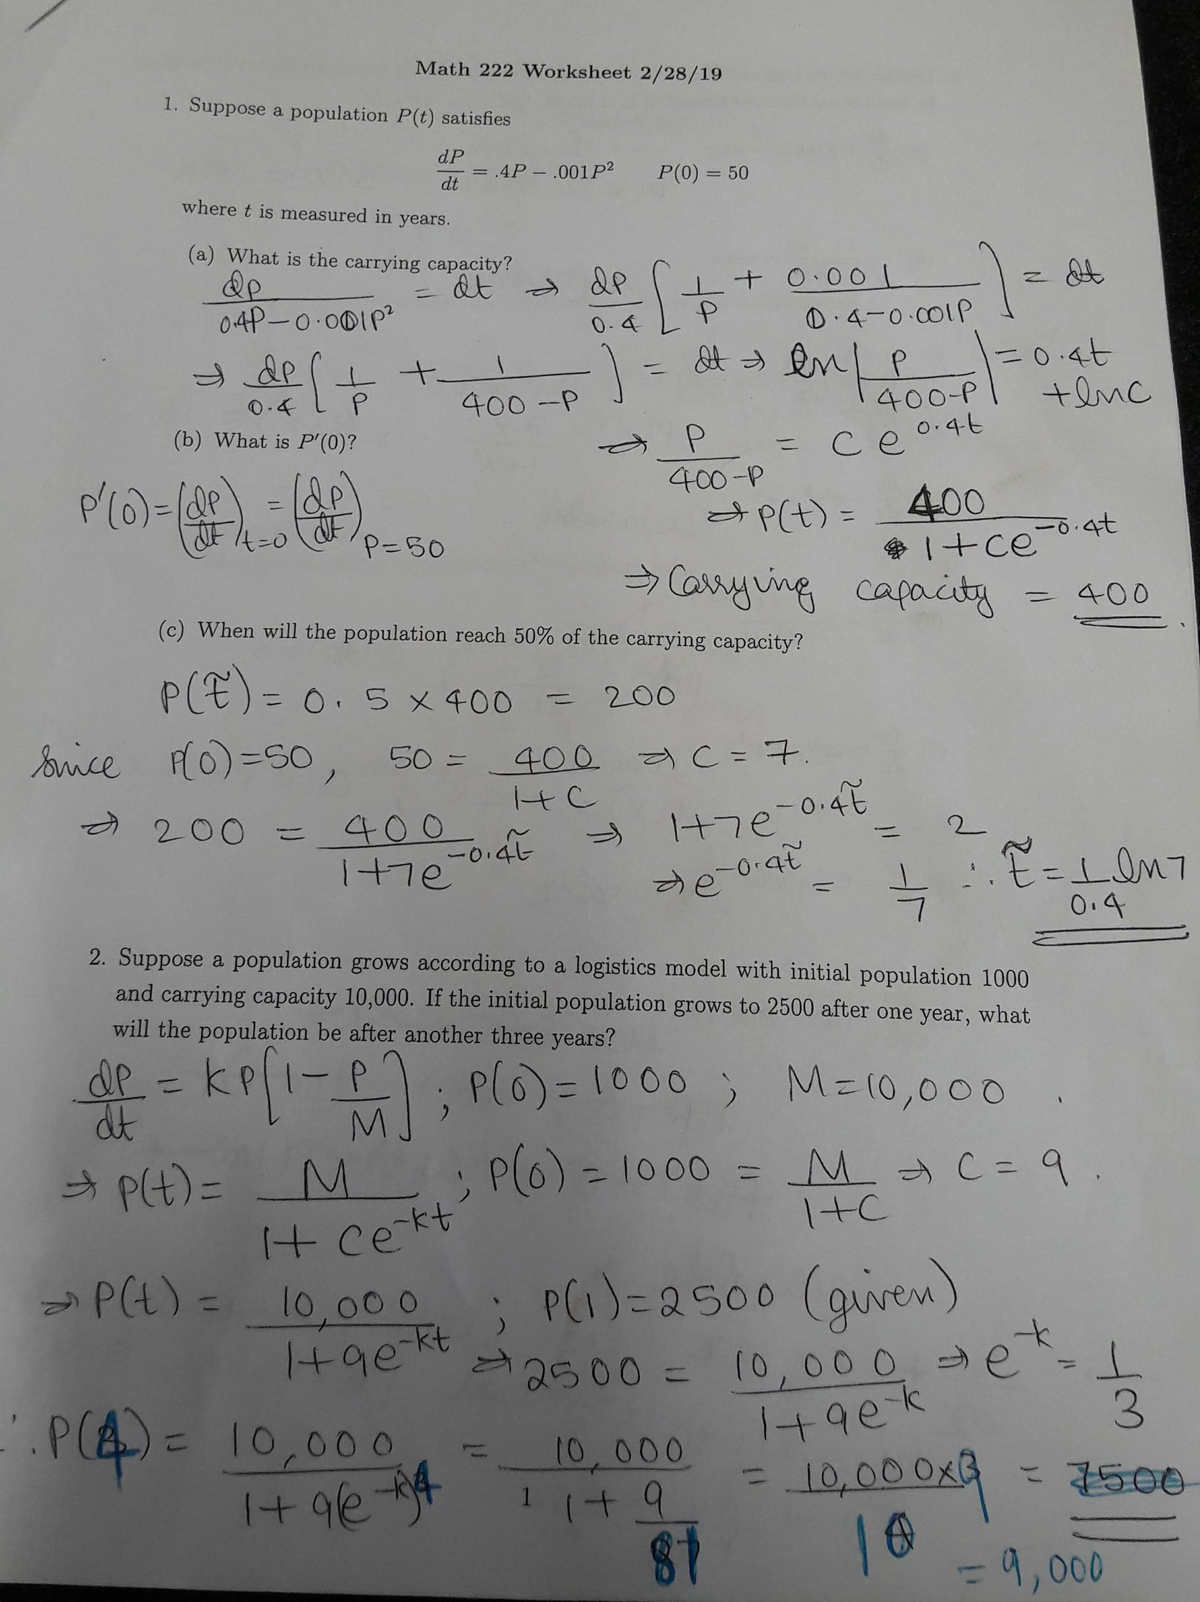 Math 222 Worksheet 2/28/19
1. Suppose a population P(t) satisfies
dP/dt = .4P − .001P² P(0) = 50
where t is measured in years.
(a) What is the carrying capacity?
dP/(0.4P − 0.001P²) = dt ⇒ dP/0.4 [1/P + 0.001/(0.4 − 0.001P)] = dt
⇒ dP/0.4 [1/P + 1/(400 − P)] = dt ⇒ ln|P/(400-P)| = 0.4t + ln C
(b) What is P′(0)?
⇒ P/(400-P) = C e^(0.4t)
P'(0) = (dP/dt)_(t=0) = (dP/dt)_(P=50)
⇒ P(t) = 400/(1 + Ce^(-0.4t))
⇒ Carrying capacity = 400.
(c) When will the population reach 50% of the carrying capacity?
P(t̃) = 0.5 × 400 = 200
Since P(0) = 50, 50 = 400/(1 + C) ⇒ C = 7.
⇒ 200 = 400/(1+7e^(-0.4t̃)) ⇒ 1+7e^(-0.4t̃) = 2
⇒ e^(-0.4t̃) = 1/7 ∴ t̃ = 1/0.4 ln 7
2. Suppose a population grows according to a logistics model with initial population 1000
and carrying capacity 10,000. If the initial population grows to 2500 after one year, what
will the population be after another three years?
dP/dt = kP[1 − P/M] ; P(0) = 1000 ; M = 10,000.
⇒ P(t) = M/(1 + Ce^(-kt)) ; P(0) = 1000 = M/(1+C) ⇒ C = 9.
⇒ P(t) = 10,000/(1+9e^(-kt)) ; P(1) = 2500 (given)
⇒ 2500 = 10,000/(1+9e^(-k)) ⇒ e^(-k) = 1/3
∴ P(4) = 10,000/(1+9(e^(-k))^4) = 10,000/(1 + 9/81) = 10,000×9/10 = 7500
1
= 9,000